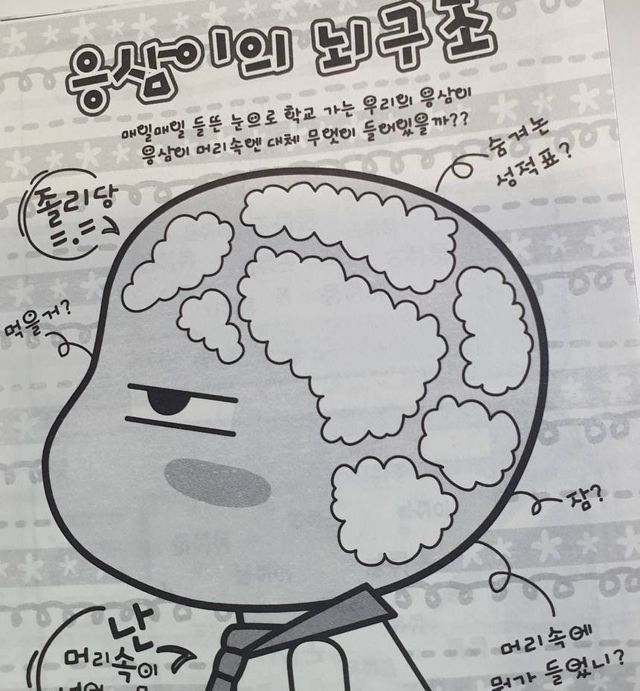 응삼이의 뇌구조
매일매일 들뜬 눈으로 학교 가는 우리의 응삼이
응삼이 머리속엔 대체 무엇이 들어있을까??
숨겨논
성적표?
졸리당
=.=
먹을거?
잠?
머리속에
뭐가 들었니?
난
머리속이